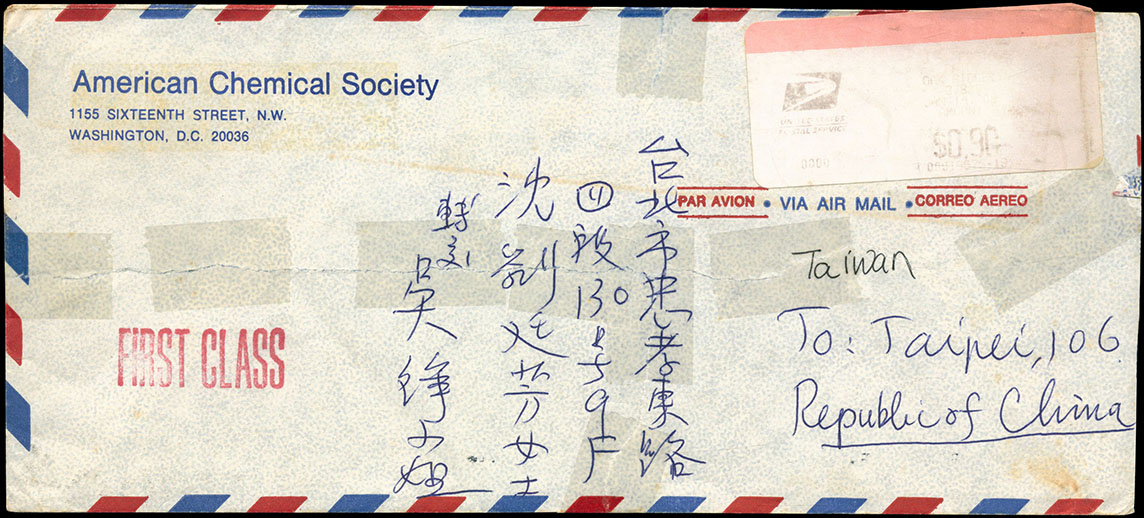 American Chemical Society
1155 SIXTEENTH STREET, N.W.
WASHINGTON, D.C. 20036
UNITED STATES
POSTAL SERVICE
0000
$0.90
PAR AVION • VIA AIR MAIL • CORREO AEREO
Taiwan
To: Taipei, 106
Republic of China
FIRST CLASS
台北市忠孝東路
四段130号9F
沈劉廷芳女士
轉交
吳錚小姐